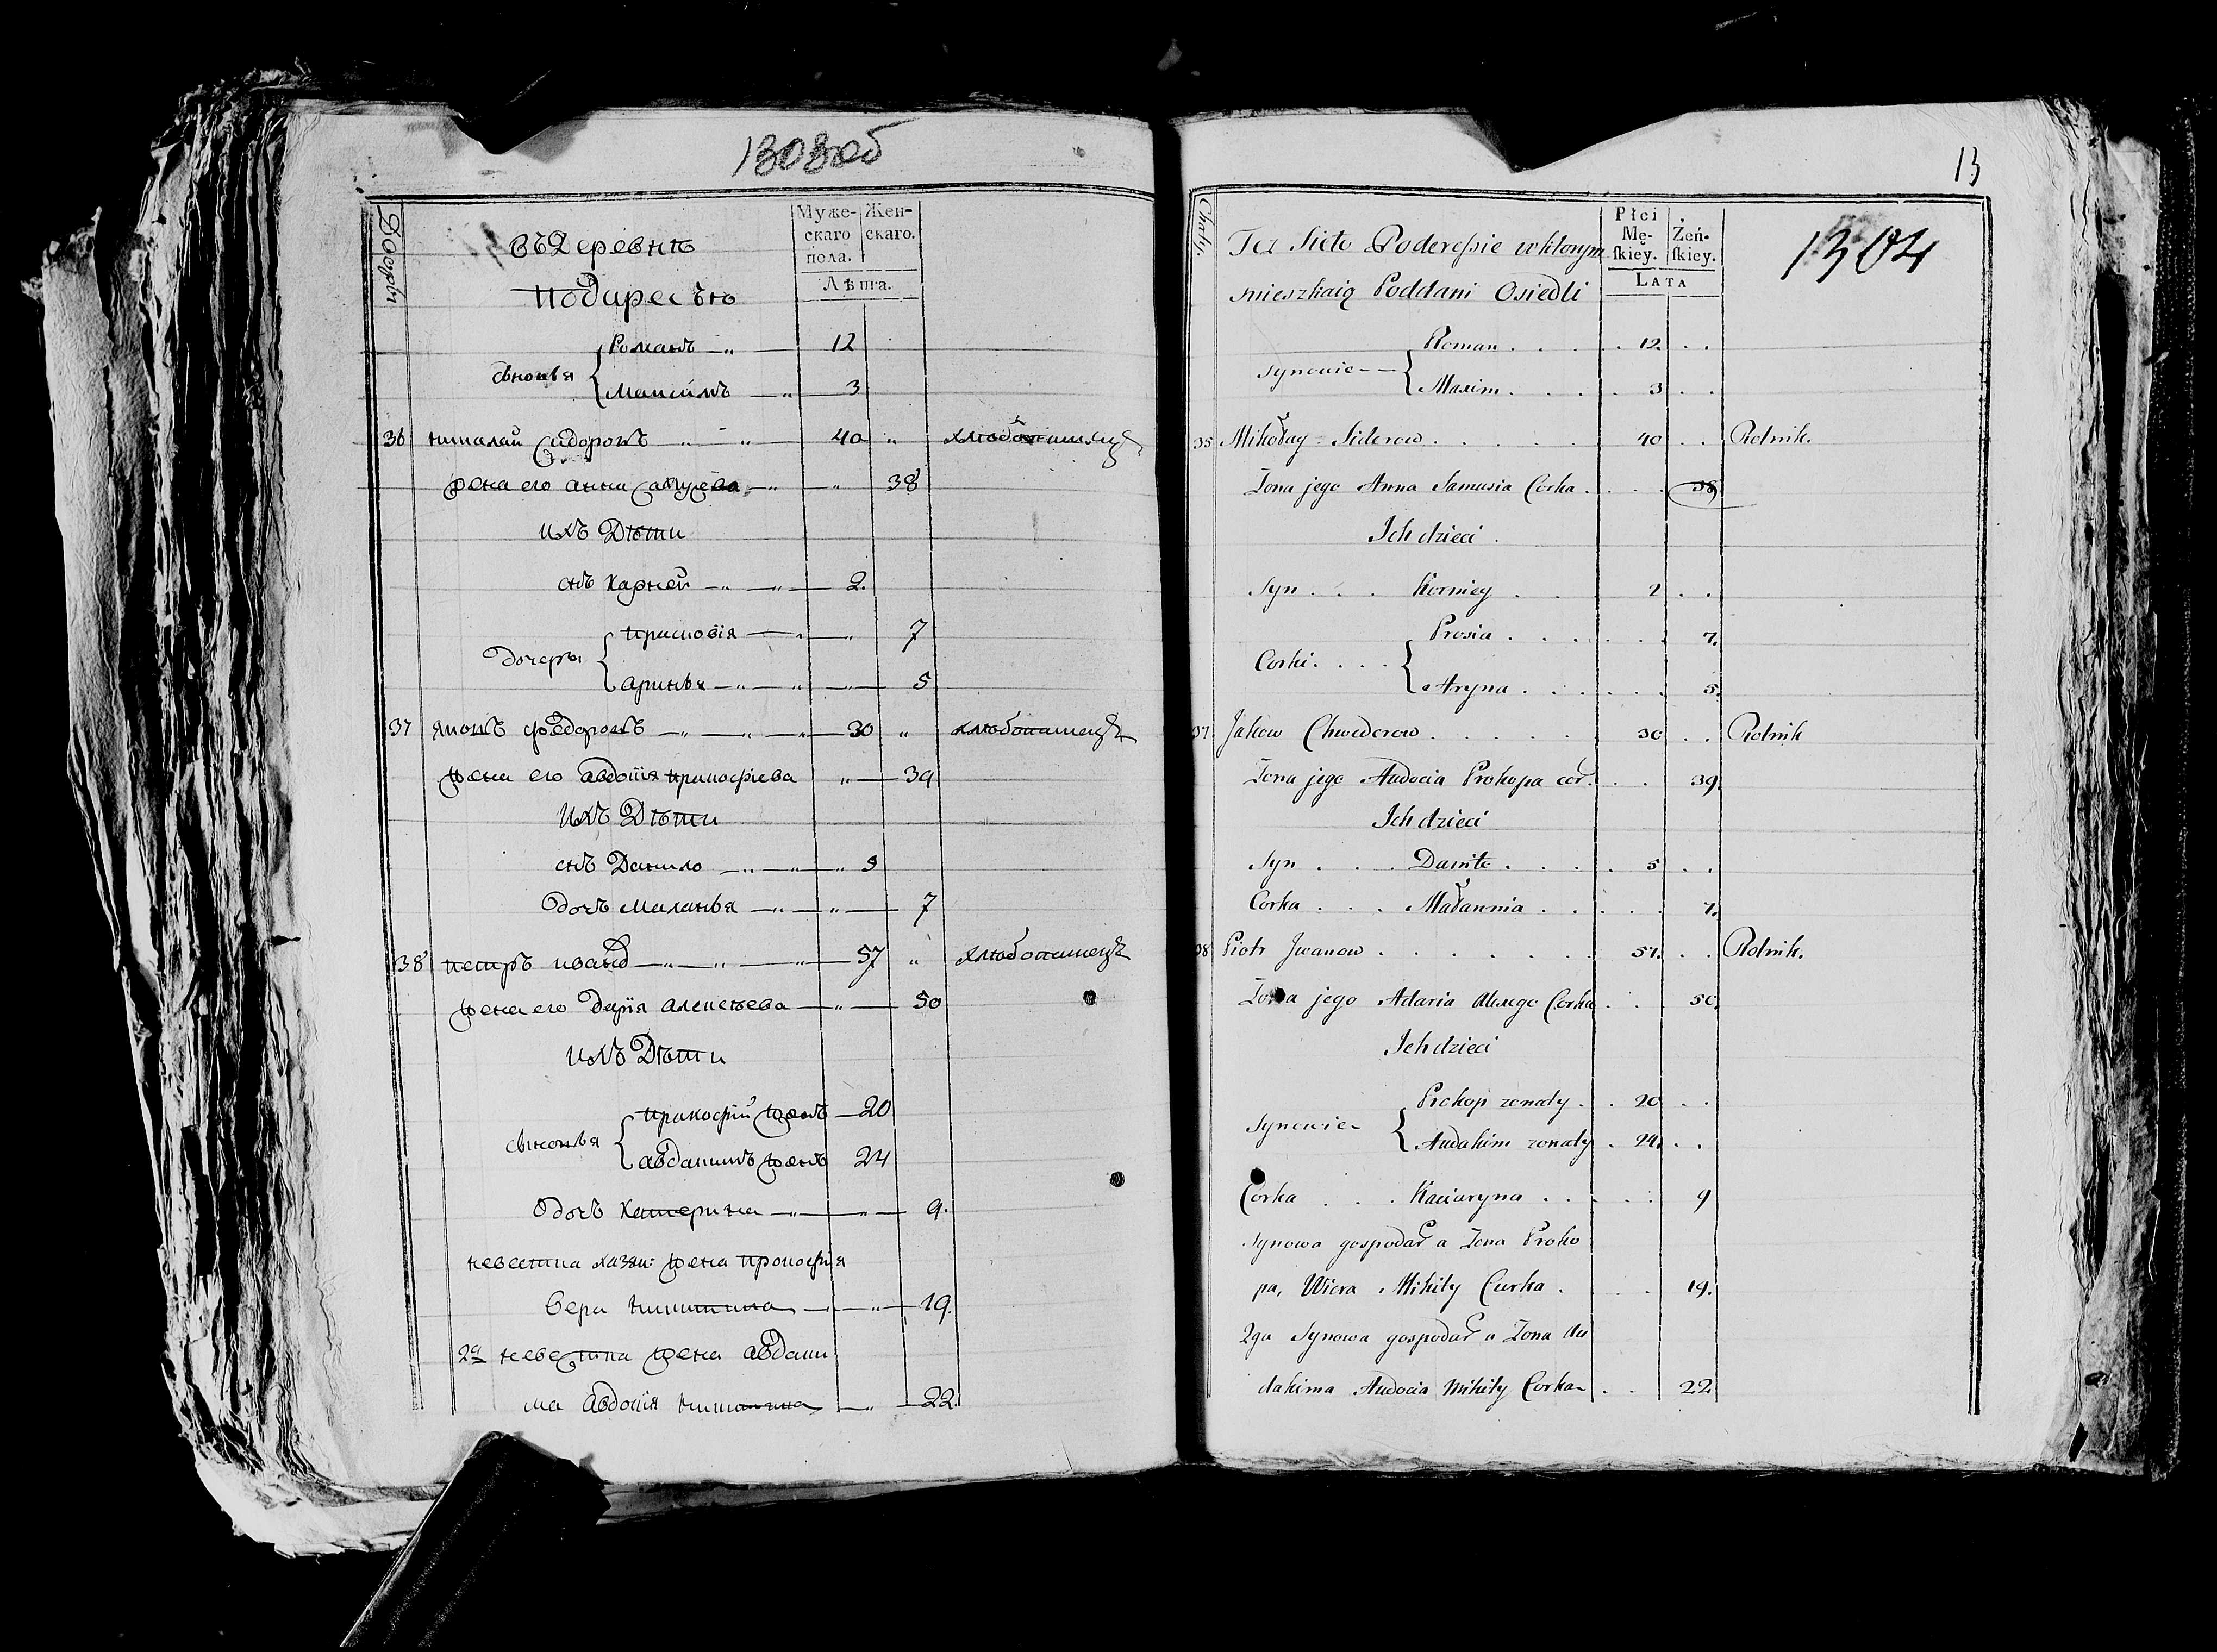 1303об
Дворы
въ Деревнѣ
Подересѣю
Муже-
скаго
пола.
Жен-
скаго.
Лѣта.
сыновья
Романъ 12
Максимъ 3
36 николай Сидоровъ 40 хлебопашецъ
жена его анна Самусева 38
ихъ Дѣти
снъ Карней 2.
дочеры
Прасковія 7
аринья 5
37 яковъ федоровъ 30 хлебопашецъ
жена его авдотія прокофіева 39
ихъ Дѣти
снъ Данило 5
дочъ маланья 7
38 петръ иванов 57 хлебопашецъ
жена его Дарія алексѣева 50
ихъ Дѣти
сыновья
прокофій женъ 20
авдакимъ женъ 24
дочъ Катерина 9.
невестка хазяи: жена прокофія
вера никитина 19.
2я невестка жена авдаки
ма авдотія никитина 22.
13
1304
Chaty.
Tez Sioło Poderesie w ktorym
mieszkaią Poddani Osiedli
Płci
Mę-
skiey.
Zeń-
skiey.
LATA
Synowie
Roman 12.
Maxim 3
35 Mikołay Siderow 40 Rolnik.
Zona jego Anna Samusia Corka 38
Ich dzieci.
Syn Korniey 2
Corki
Prosia 7.
Aryna 5.
37 Jakow Chwederow 30 Rolnik
Zona jego Audocia Prokopa cor. 39.
Ich dzieci
Syn Daniło 5
Corka Małannia 7.
38 Piotr Jwanow 57. Rolnik.
Zona jego Adaria Alexego Corka 50.
Ich dzieci
Synowie
Prokop zonaty 20
Audakim zonaty 24.
Corka Kaciaryna 9
Synowa gospodar a Zona Proko
pa, Wiera Mikity Curka 19.
2ga Synowa gospodar a Zona Au
dakima Audocia Mikity Corka 22.